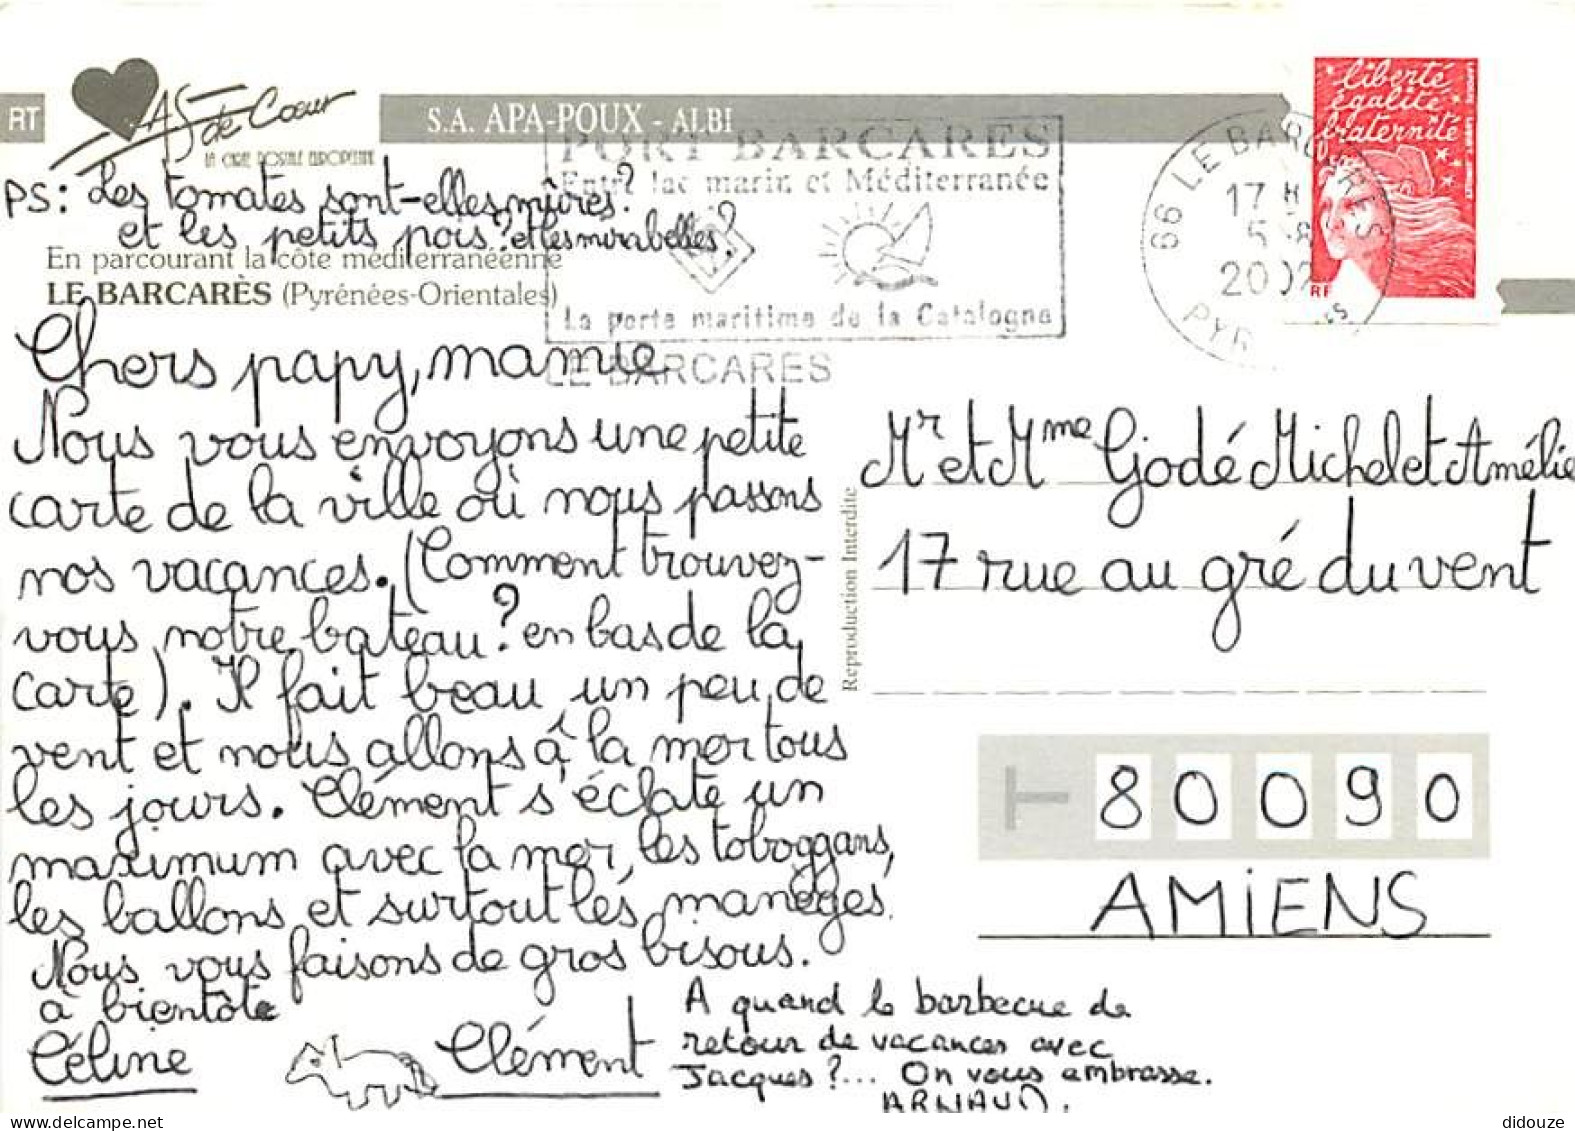 RT
AS de Cœur
LA CARTE POSTALE EUROPEENNE
S.A. APA-POUX - ALBI
PORT BARCARES
Entre lac marin et Méditerranée
La porte maritime de la Catalogne
LE BARCARES
66 LE BARCARES
17 H
5 -8
2002
PYR
liberté
égalité
fraternité
RF
LA POSTE
PS: Les tomates sont-elles mûres?
et les petits pois? et les mirabelles?
En parcourant la côte méditerranéenne
LE BARCARÈS (Pyrénées-Orientales)
Chers papy, mamie
Nous vous envoyons une petite
carte de la ville où nous passons
nos vacances. (Comment trouvez-
vous notre bateau? en bas de la
carte). Il fait beau un peu de
vent et nous allons à la mer tous
les jours. Clément s'éclate un
maximum avec la mer, les toboggans,
les ballons et surtout les manèges.
Nous vous faisons de gros bisous.
à bientôt
Céline
Clément
A quand le barbecue de
retour de vacances avec
Jacques?... On vous embrasse.
ARNAUD.
Reproduction Interdite
Mr et Mme Godé Michel et Amélie
17 rue au gré du vent
80090
AMiENS
didouze